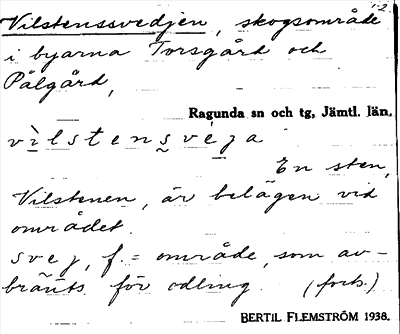 1-2.
Vilstenssvedjen, skogsområde
i byarna Torsgård och
Pålgård,
Ragunda sn och tg, Jämtl. län.
vìlstensvéja
En sten,
Vilstenen, är belägen vid
området.
svej, f. = område, som av-
bränts för odling. (forts.)
BERTIL FLEMSTRÖM 1938.